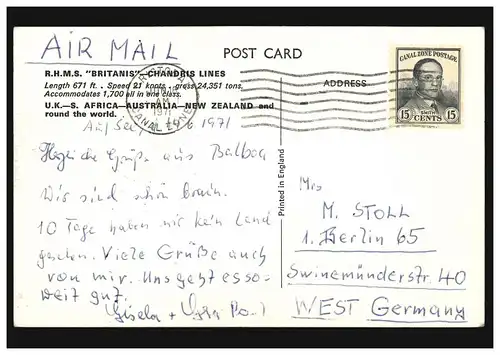 AIR MAIL
POST CARD
CANAL ZONE POSTAGE
SMITH
15 CENTS 15
R.H.M.S. "BRITANIS"—CHANDRIS LINES
Length 671 ft. · Speed 21 knots · gross 24,351 tons.
Accommodates 1,700 all in one class.
U.K.—S. AFRICA—AUSTRALIA—NEW ZEALAND and
round the world.
ADDRESS
CRISTOBAL
AM
1971
CANAL ZONE
1971
Herzliche Grüße aus Balboa
Wir sind schön braun.
10 Tage haben wir kein Land
gesehen. Viele Grüße auch
von mir. Uns geht es so-
weit gut.
Gisela +
Printed in England
Mrs
M. STOLL
1. Berlin 65
Swinemünderstr. 40
WEST Germany